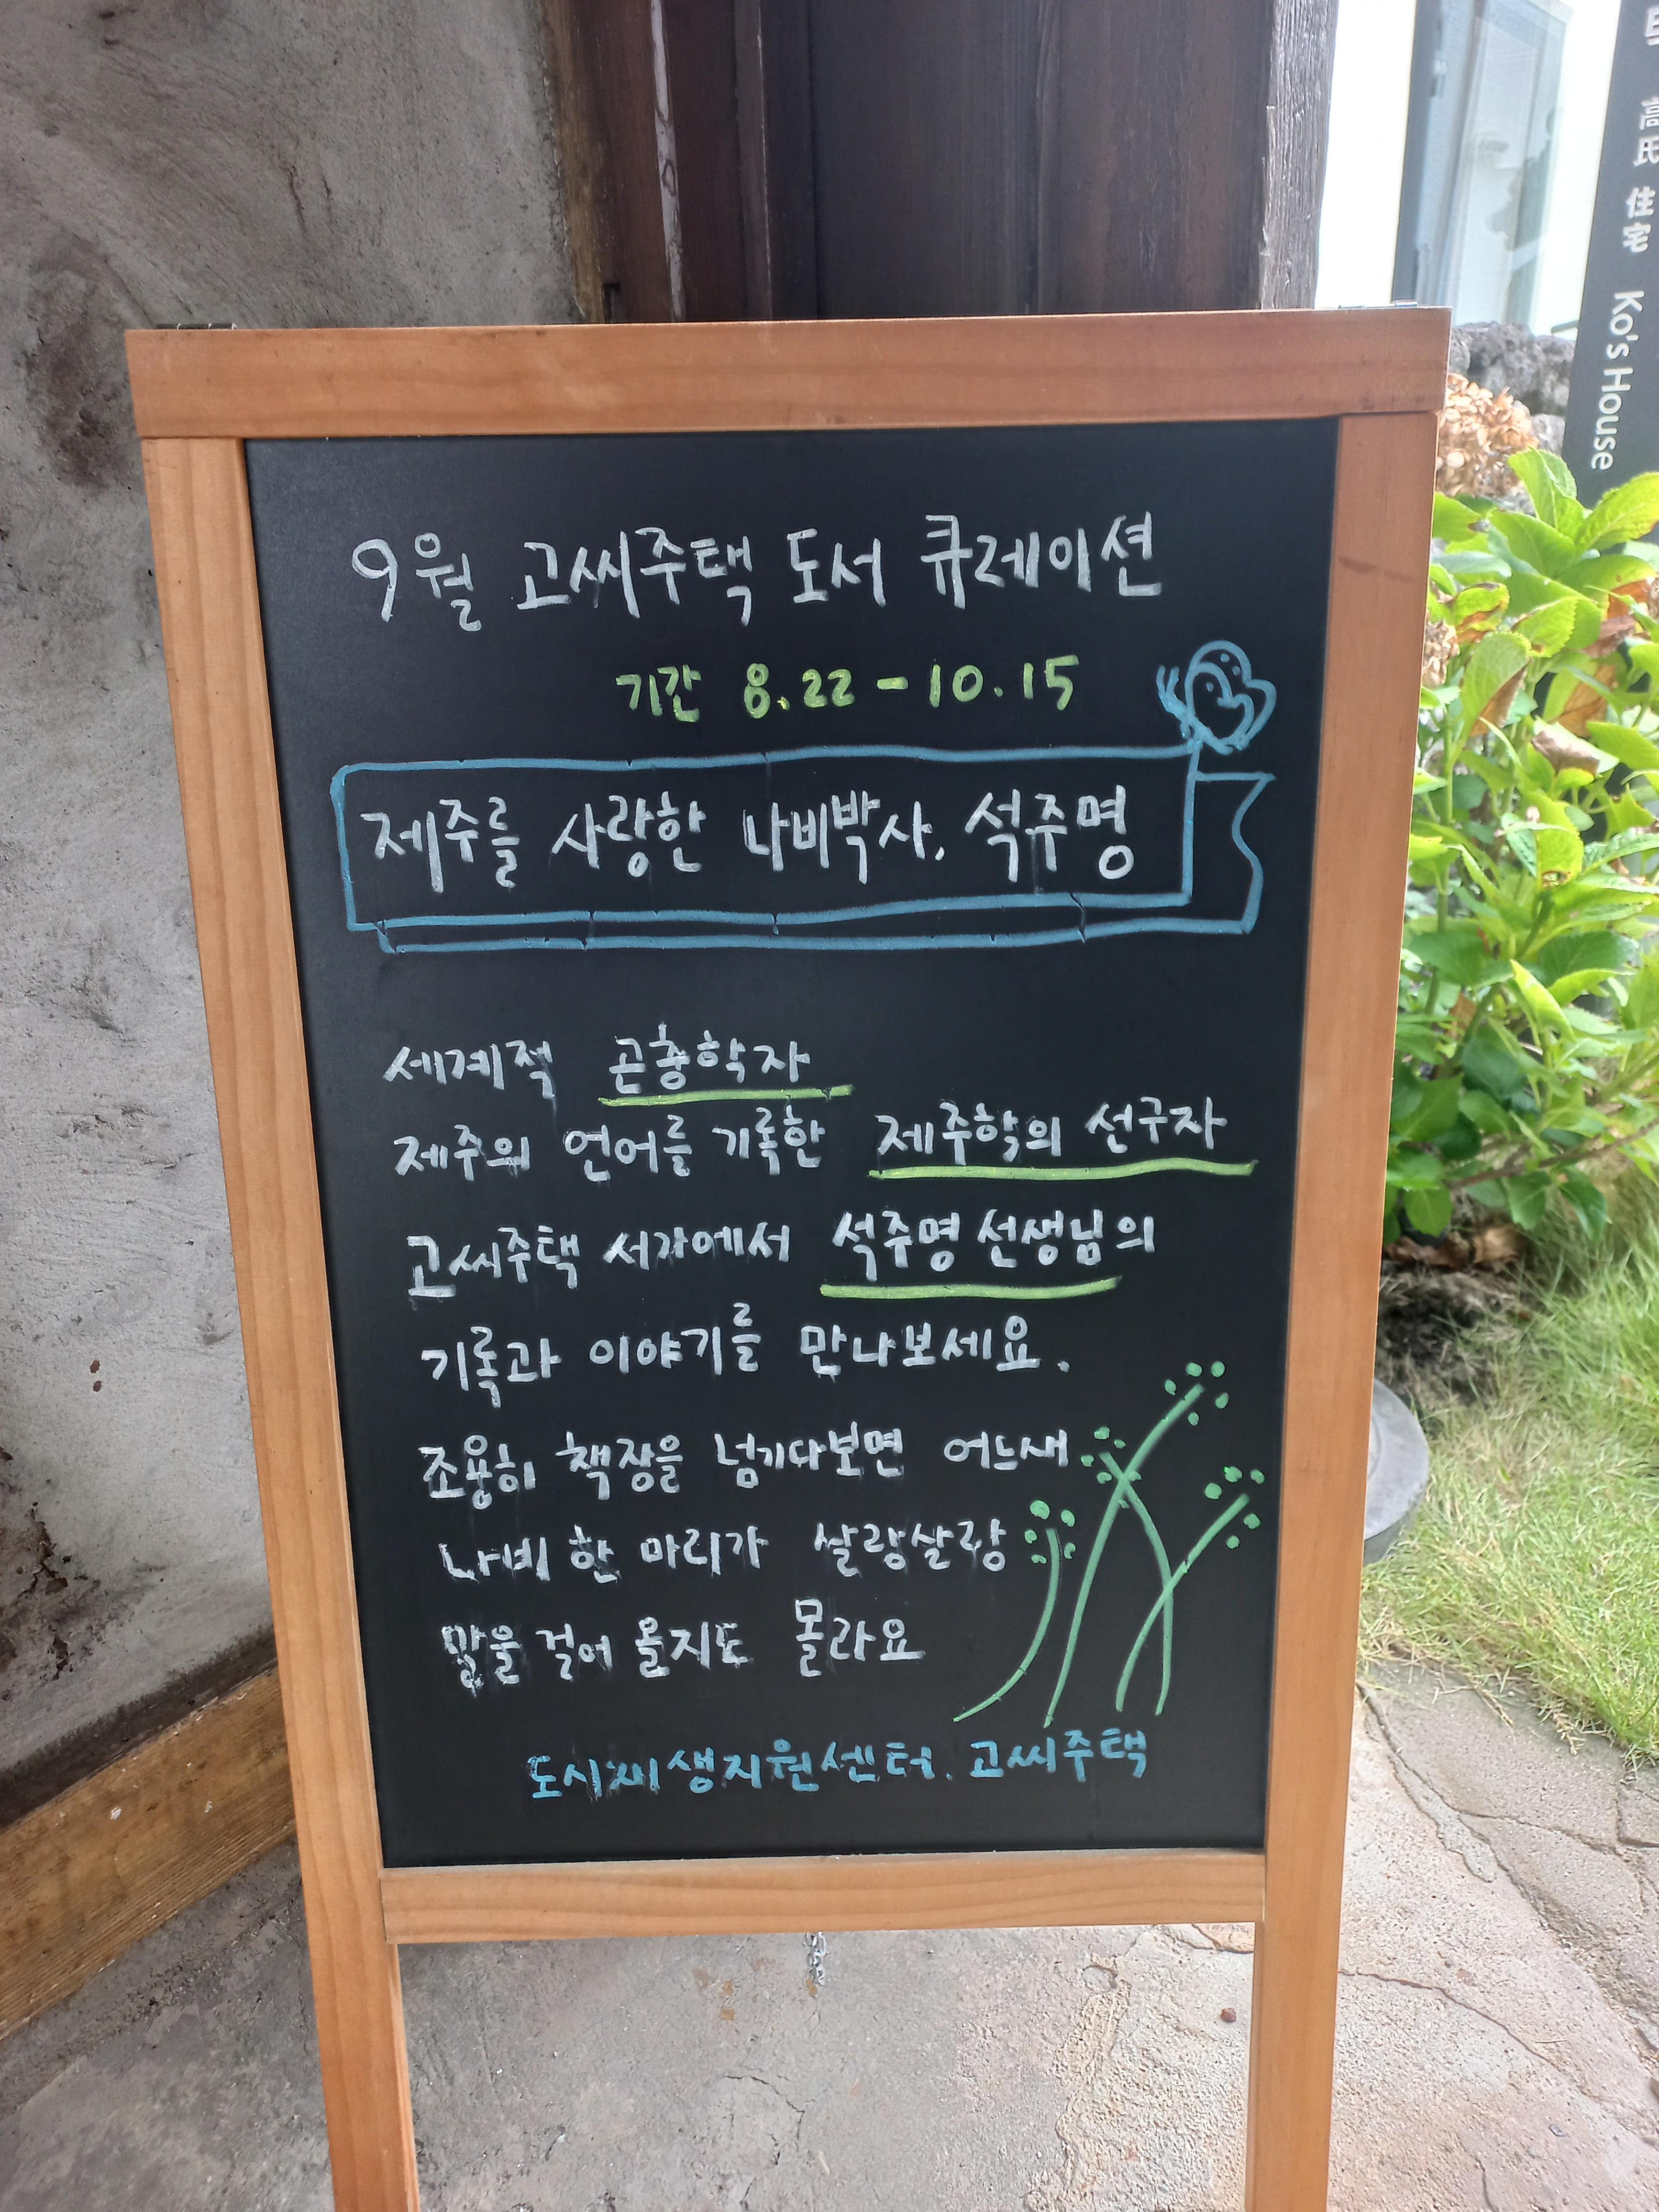 9월 고씨주택 도서 큐레이션
기간 8.22 - 10.15
제주를 사랑한 나비박사, 석주명
세계적 곤충학자
제주의 언어를 기록한 제주학의 선구자
고씨주택 서가에서 석주명 선생님의
기록과 이야기를 만나보세요.
조용히 책장을 넘기다보면 어느새
나비 한 마리가 살랑살랑
말을 걸어 올지도 몰라요
도시재생지원센터. 고씨주택
高氏 住宅 Ko's House